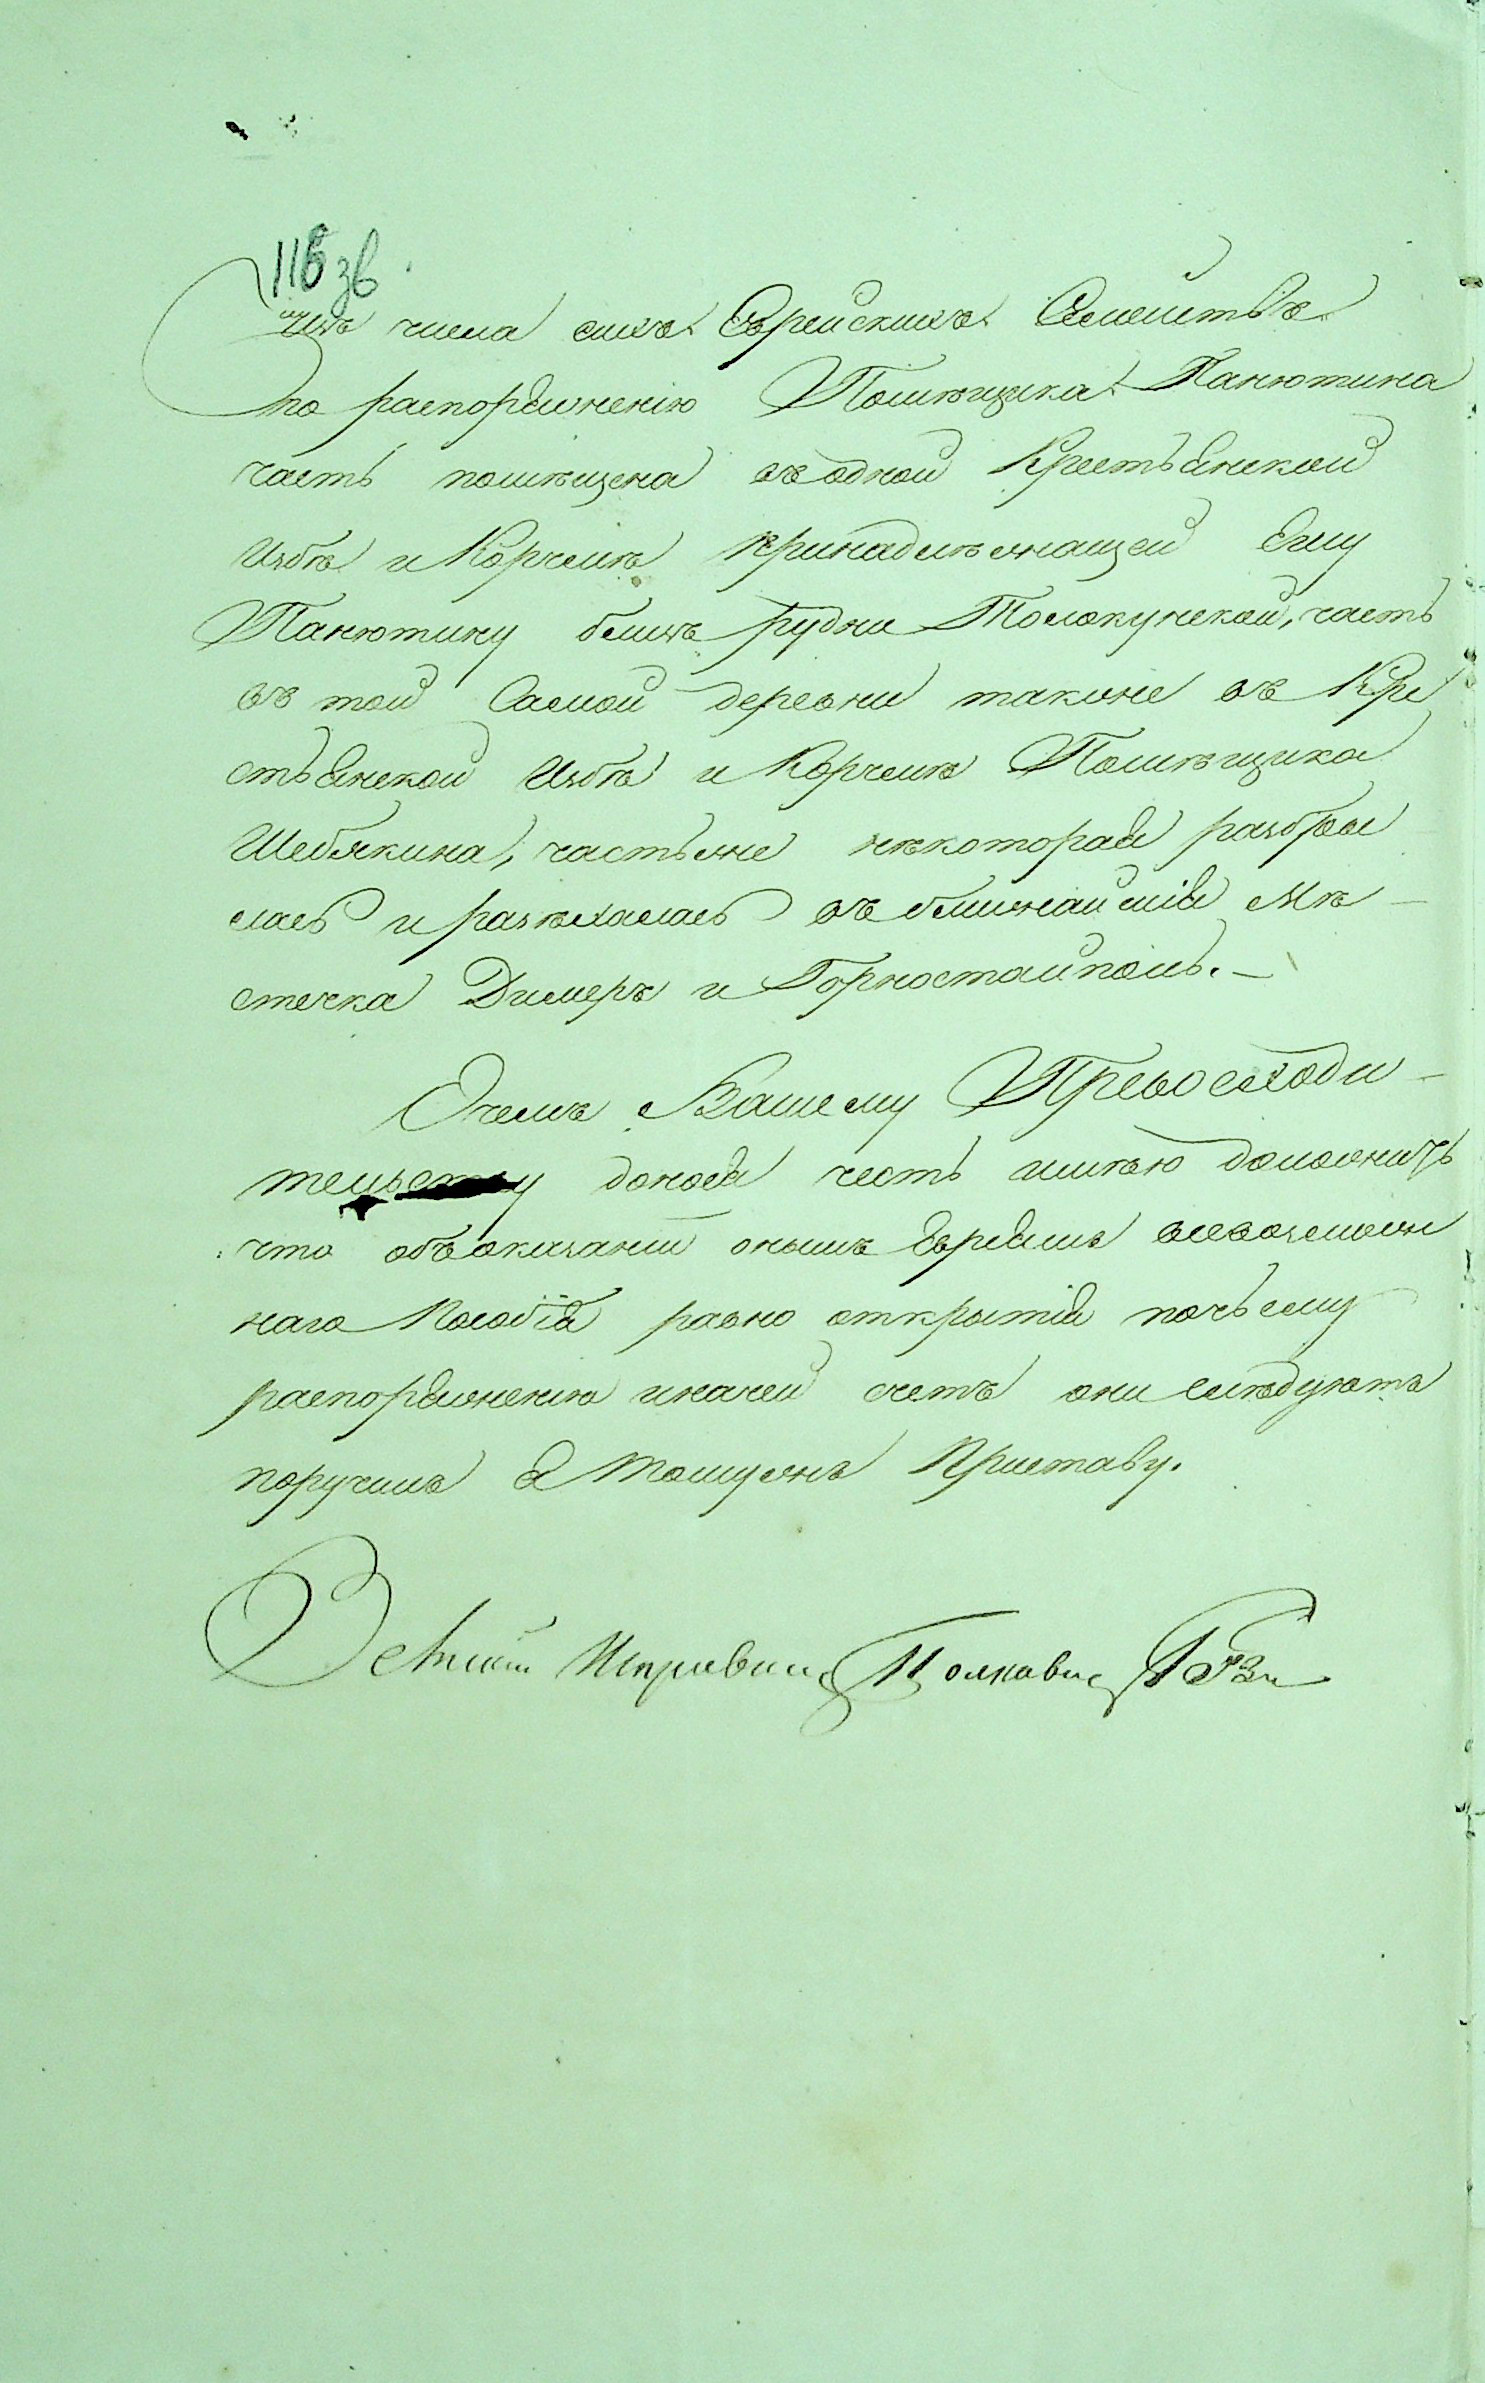 116 зв
изъ числа сихъ Еврейскихъ Семействъ
по распоряженію Помѣщика Панютина
часть помѣщена въ одной Крестьянской
Избѣ и Корчмѣ принадлѣжащей Ему
Панютину близъ рудни Толокунской, часть
въ той Самой деревни также въ Кре
стьянской Избѣ и Корчмѣ Помѣщика
Шеблякина, частьже нѣкоторая разбрѣ
лась и разъѣхалась въ ближайшія Мѣ
стечка Димеръ и Горностайполь. —
Очемъ Вашему Превосходи-
тельству донося честь имѣю доложить
что объ оказаніи онымъ Евреямъ всевозмож
наго Пособія равно открытія почьему
распоряженію иначей счетъ они слѣдуютъ
поручилъ я томужъ Приставу.
Земскій Исправник Полковн